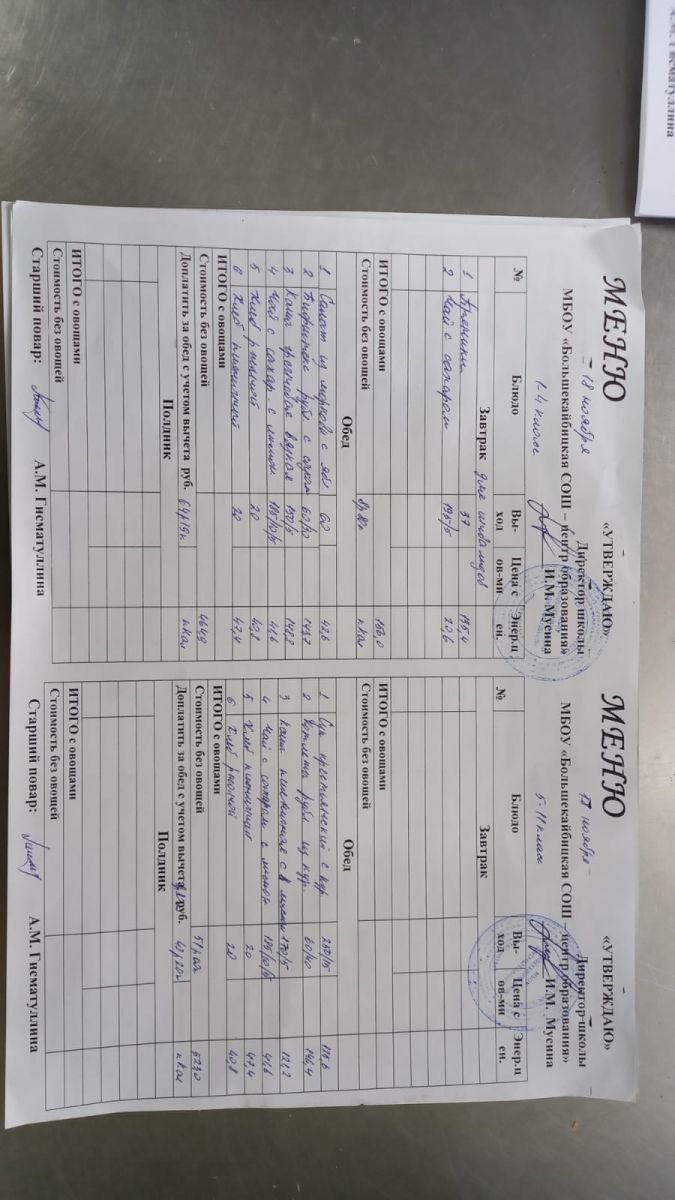 А.М. Гисматуллина
МЕНЮ
«УТВЕРЖДАЮ»
18 ноября
Директор школы
МБОУ «Большекайбицкая СОШ – центр образования»
1-4 класс
И.М. Мусина
№ Блюдо Вы-ход Цена с ов-ми Энер.ц ен.
Завтрак для инвалидов
1 Пряники 37 135,4
2 Чай с сахаром 195/5 20,6
ИТОГО с овощами 156,0
Стоимость без овощей ккал
Обед
1 Салат из моркови с яб 60 42,6
2 Бифштекс руб с 60/30 143,7
3 Каша гречневая вязкая 150/5 148,2
4 Чай с сахар. с лимон 195/10/5 41,6
5 Хлеб ржаной 20 40,8
6 Хлеб пшеничный 20 47,4
ИТОГО с овощами
Стоимость без овощей 464,9
Доплатить за обед с учетом вычета руб. 64р19к ккал
Полдник
ИТОГО с овощами
Стоимость без овощей
Старший повар: А.М. Гисматуллина
МЕНЮ
«УТВЕРЖДАЮ»
ноября
Директор школы
МБОУ «Большекайбицкая СОШ – центр образования»
5-11 класс
И.М. Мусина
№ Блюдо Вы-ход Цена с ов-ми Энер.ц ен.
Завтрак
ИТОГО с овощами
Стоимость без овощей
Обед
1 Суп крестьянский с кур 250/15 125,6
2 Котлета руб из кур. 60/40 146,4
3 Каша пшеничная с 170/5 121,2
4 Чай с сахаром с лимон 195/10/5 41,6
5 Хлеб пшеничный 20 47,4
6 Хлеб ржаной 20 40,8
ИТОГО с овощами
Стоимость без овощей 523,0
Доплатить за обед с учетом вычета руб. 41р20к ккал
Полдник
ИТОГО с овощами
Стоимость без овощей
Старший повар: А.М. Гисматуллина